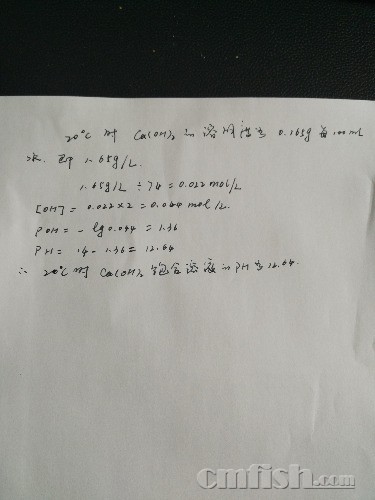 20°C 时 Ca(OH)₂ 的溶解度为 0.165g 每100ml
水. 即 1.65g/L.
1.65g/L ÷ 74 = 0.022 mol/L
[OH] = 0.022×2 = 0.044 mol/L.
POH = -lg0.044 = 1.36
PH = 14 - 1.36 = 12.64
∴ 20°C 时 Ca(OH)₂ 饱合溶液的 PH为12.64.
cmfish.com